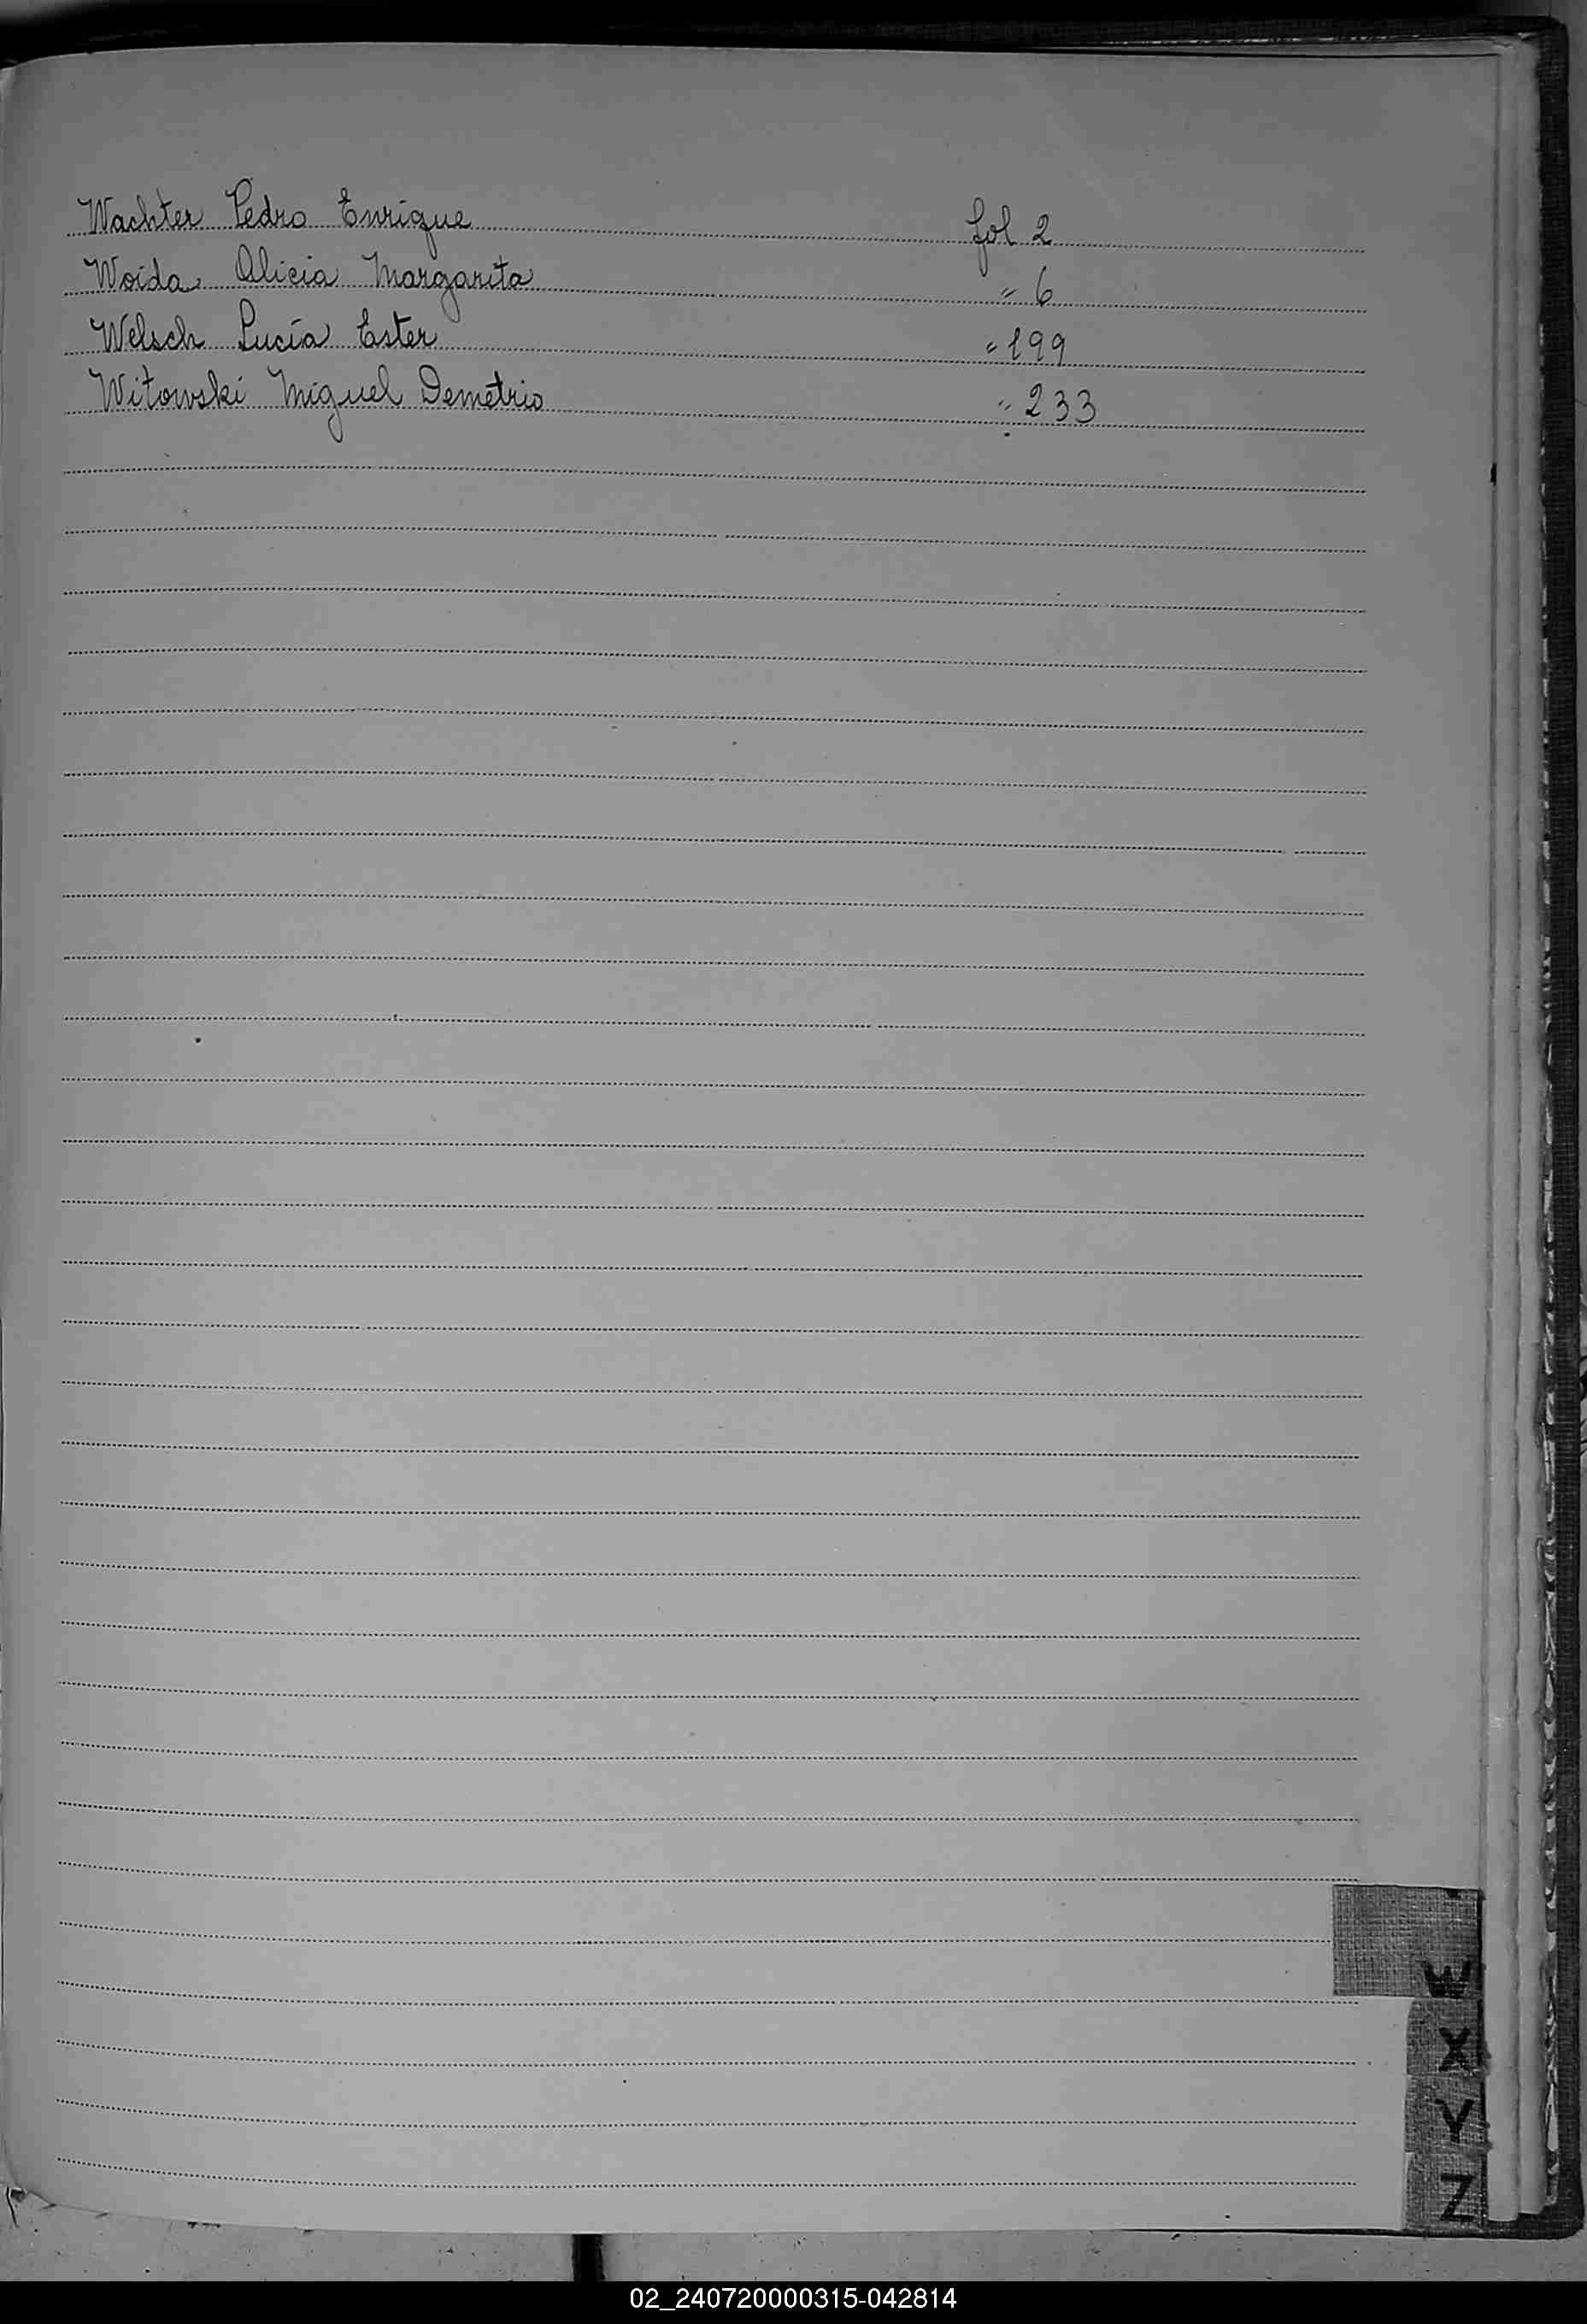 Wachter Pedro Enrique fol 2
Woida Alicia Margarita " 6
Welsch Lucía Ester " 199
Witowski Miguel Demetrio " 233
W
X
Y
Z
02_240720000315-042814